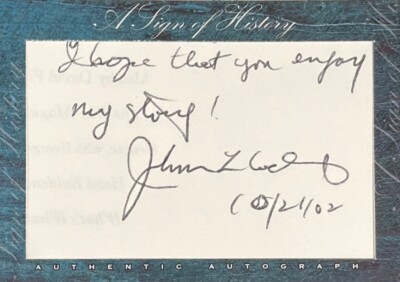 A Sign of History
I hope that you enjoy
my story!
John L
10/21/02
AUTHENTIC AUTOGRAPH